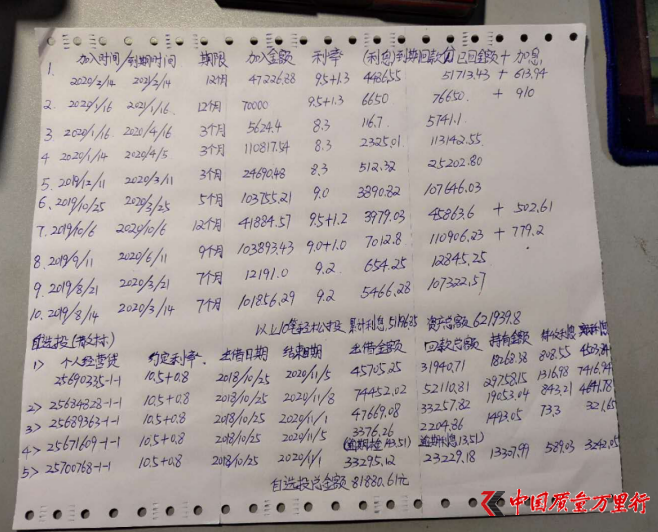 加入时间/到期时间 期限 加入金额 利率 (利息)到期回款 已回金额 + 加息
1. 2020/2/14 2021/2/14 12个月 47226.88 9.5+1.3 4486.55 51713.43 + 613.94
2. 2020/1/16 2021/1/16 12个月 70000 9.5+1.3 6650 76650. + 910
3. 2020/1/16 2020/4/16 3个月 5624.4 8.3 116.7 5741.1
4 2020/1/14 2020/4/5 3个月 110817.54 8.3 2325.01 113142.55
5. 2019/12/11 2020/3/11 3个月 24690.48 8.3 512.32 25202.80
6. 2019/10/25 2020/3/25 5个月 103755.21 9.0 3890.82 107646.03
7. 2019/10/6 2020/10/6 12个月 41884.57 9.5+1.2 3979.03 45863.6 + 502.61
8. 2019/9/11 2020/6/11 9个月 103893.43 9.0+1.0 7012.8 110906.23 + 779.2
9. 2019/8/21 2020/3/21 7个月 12191.0 9.2 654.25 12845.25
10. 2019/8/14 2020/3/14 7个月 101856.29 9.2 5466.28 107322.57
以上10笔 累计利息 资产总额 621939.8
自选投
1> 个人经营贷 约定利率 出借日期 结束日期 出借金额 回款总额 持有金额
25690235-1-1 10.5+0.8 2018/10/25 2020/11/5 45705.25 31940.71 18268.38 808.55
2> 25684828-1-1 10.5+0.8 2018/10/25 2020/11/8 74452.02 52110.81 29758.15 1316.98 7416.94
3> 25689363-1-1 10.5+0.8 2018/10/25 2020/11/1 47669.08 33257.82 19053.04 843.21 4641.78
4> 25671609-1-1 10.5+0.8 2018/10/25 2020/11/5 3376.26 2204.86 1493.05 73.3 321.65
5> 25700768-1-1 10.5+0.8 2018/10/25 2020/1/1 33295.12 23229.18 13307.99 589.03 3242.05
自选投总金额 81880.61元
中国质量万里行